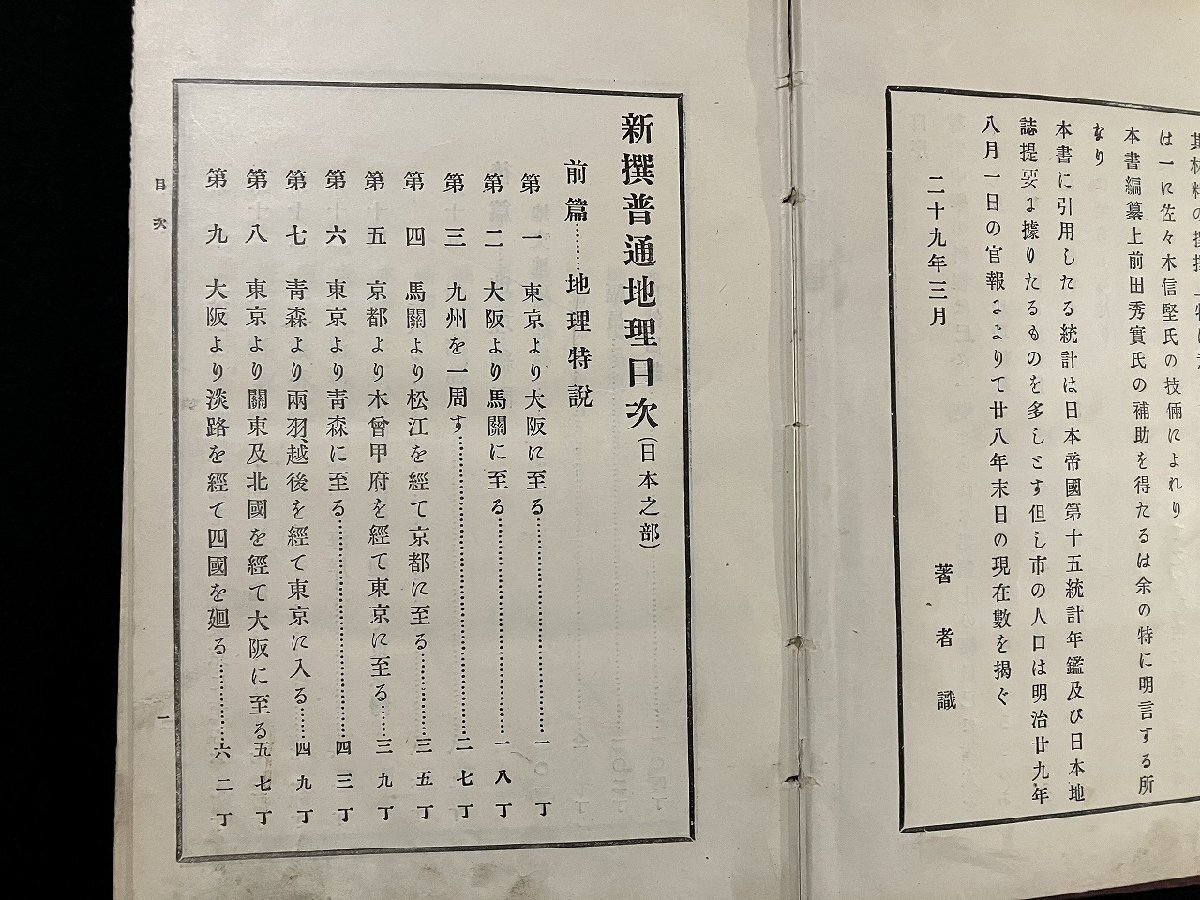 は一に佐々木信堅氏の技倆によれり
本書編纂上前田秀實氏の補助を得たるは余の特に明言する所
なり
本書に引用したる統計は日本帝國第十五統計年鑑及び日本地
誌提要に據りたるものを多しとす但し市の人口は明治廿九年
八月一日の官報によりて廿八年末日の現在數を揭ぐ
二十九年三月
著者識
新撰普通地理目次(日本之部)
前篇……地理特說
第一 東京より大阪に至る……一丁
第二 大阪より馬關に至る……一八丁
第三 九州を一周す……二七丁
第四 馬關より松江を經て京都に至る……三五丁
第五 京都より木曾甲府を經て東京に至る……三九丁
第六 東京より靑森に至る……四三丁
第七 靑森より兩羽、越後を經て東京に入る……四九丁
第八 東京より關東及北國を經て大阪に至る 五七丁
第九 大阪より淡路を經て四國を廻る……六二丁
目次
一